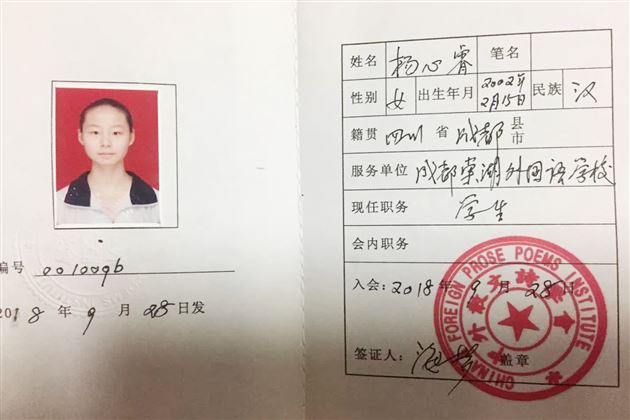 编号 001009b
2018年9月28日发
姓名 杨心睿 笔名
性别 女 出生年月 2002年2月15日 民族 汉
籍贯 四川省成都县市
服务单位 成都棠湖外国语学校
现任职务 学生
会内职务
入会：2018年9月28日
签证人： 海梦 盖章
CHINA FOREIGN PROSE POEMS INSTITUTE
中外散文诗学会